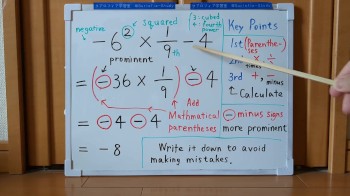 negative squared
3:cubed
4:fourth power
−6² × 1/9 − 4
th
prominent
= (−36 × 1/9) − 4
Add
Mathmatical
parentheses
= −4 −4
= −8
Write it down to avoid
making mistakes.
Key Points
1st (Parentheses)
2nd × ÷
3rd +, −
minus
↑ Calculate
− minus signs
more prominent